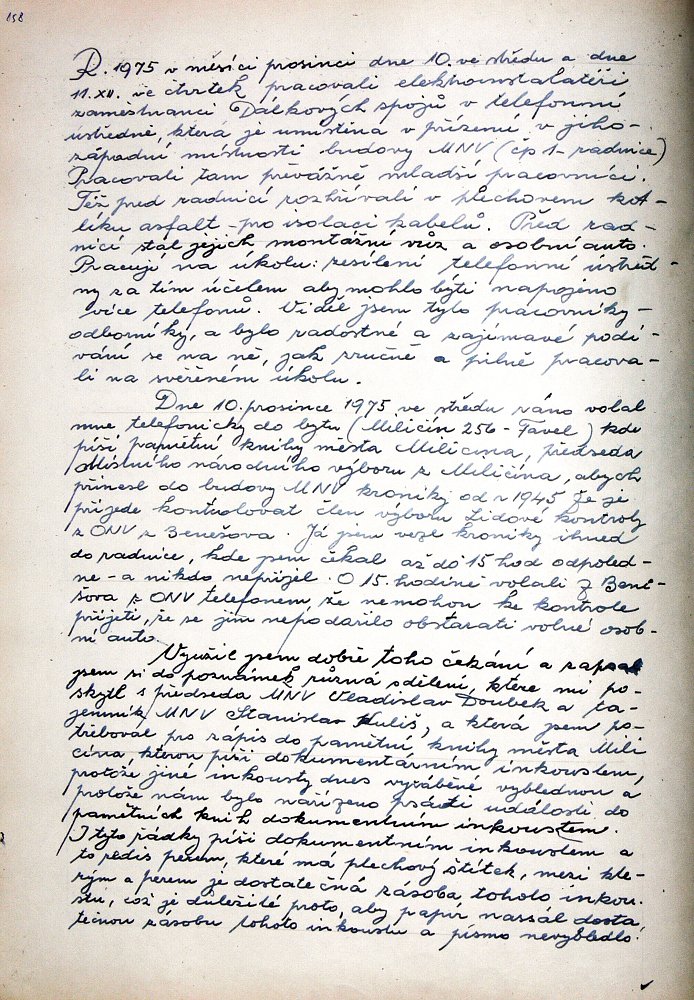 158
R. 1975 v měsíci prosinci dne 10. ve středu a dne
11. XII. ve čtvrtek pracovali elektroinstalatéři
zaměstnanci Dálkových spojů v telefonní
ústředně, která je umístěna v přízemí v jiho-
západní místnosti budovy MNV (čp 1 - radnice)
Pracovali tam převážně mladší pracovníci.
Též před radnicí rozhřívali v plechovém kot-
líku asfalt - pro isolaci kabelů. Před rad-
nicí stál jejich montážní vůz a osobní auto.
Pracují na úkolu: zesílení telefonní ústřed-
ny za tím účelem aby mohlo býti napojeno
více telefonů. Viděl jsem tyto pracovníky -
odborníky, a bylo radostné a zajímavé podí-
vání se na ně, jak zručně a pilně pracova-
li na svěřeném úkolu.
Dne 10. prosince 1975 ve středu ráno volal
mne telefonicky do bytu (Miličín 256 - Favel) kde
píši pamětní knihy města Miličína, předseda
Místního národního výboru z Miličína, abych
přinesl do budovy MNV kroniky od r 1945 že je
přijede kontrolovat člen výboru Lidové kontroly
z ONV z Benešova. Já jsem vezl kroniky ihned
do radnice, kde jsem čekal až do 15 hod odpoled-
ne - a nikdo nepřijel. O 15. hodině volali z Bene-
šova z ONV telefonem, že nemohou ke kontrole
přijeti, že se jim nepodařilo obstarati volné osob-
ní auto.
Využil jsem dobře toho čekání a zapsal
jsem si do poznámek různá sdělení, které mi po-
skytl s předseda MNV Vladislav Doubek a ta-
jemník MNV Stanislav Kuliš, a která jsem po-
třeboval pro zápis do pamětní knihy města Mili
čína, kterou píši dokumentárním inkoustem,
protože jiné inkousty dnes vyráběné vyblednou a
protože nám bylo nařízeno psáti události do
pamětních knih dokumentním inkoustem.
I tyto řádky píši dokumentním inkoustem a
to redis perem, které má plechový štítek, mezi kte-
rým a perem je dostatečná zásoba tohoto inkou-
stu, což je důležité proto, aby papír nassál dosta
tečnou zásobu tohoto inkoustu a písmo nevybledlo.